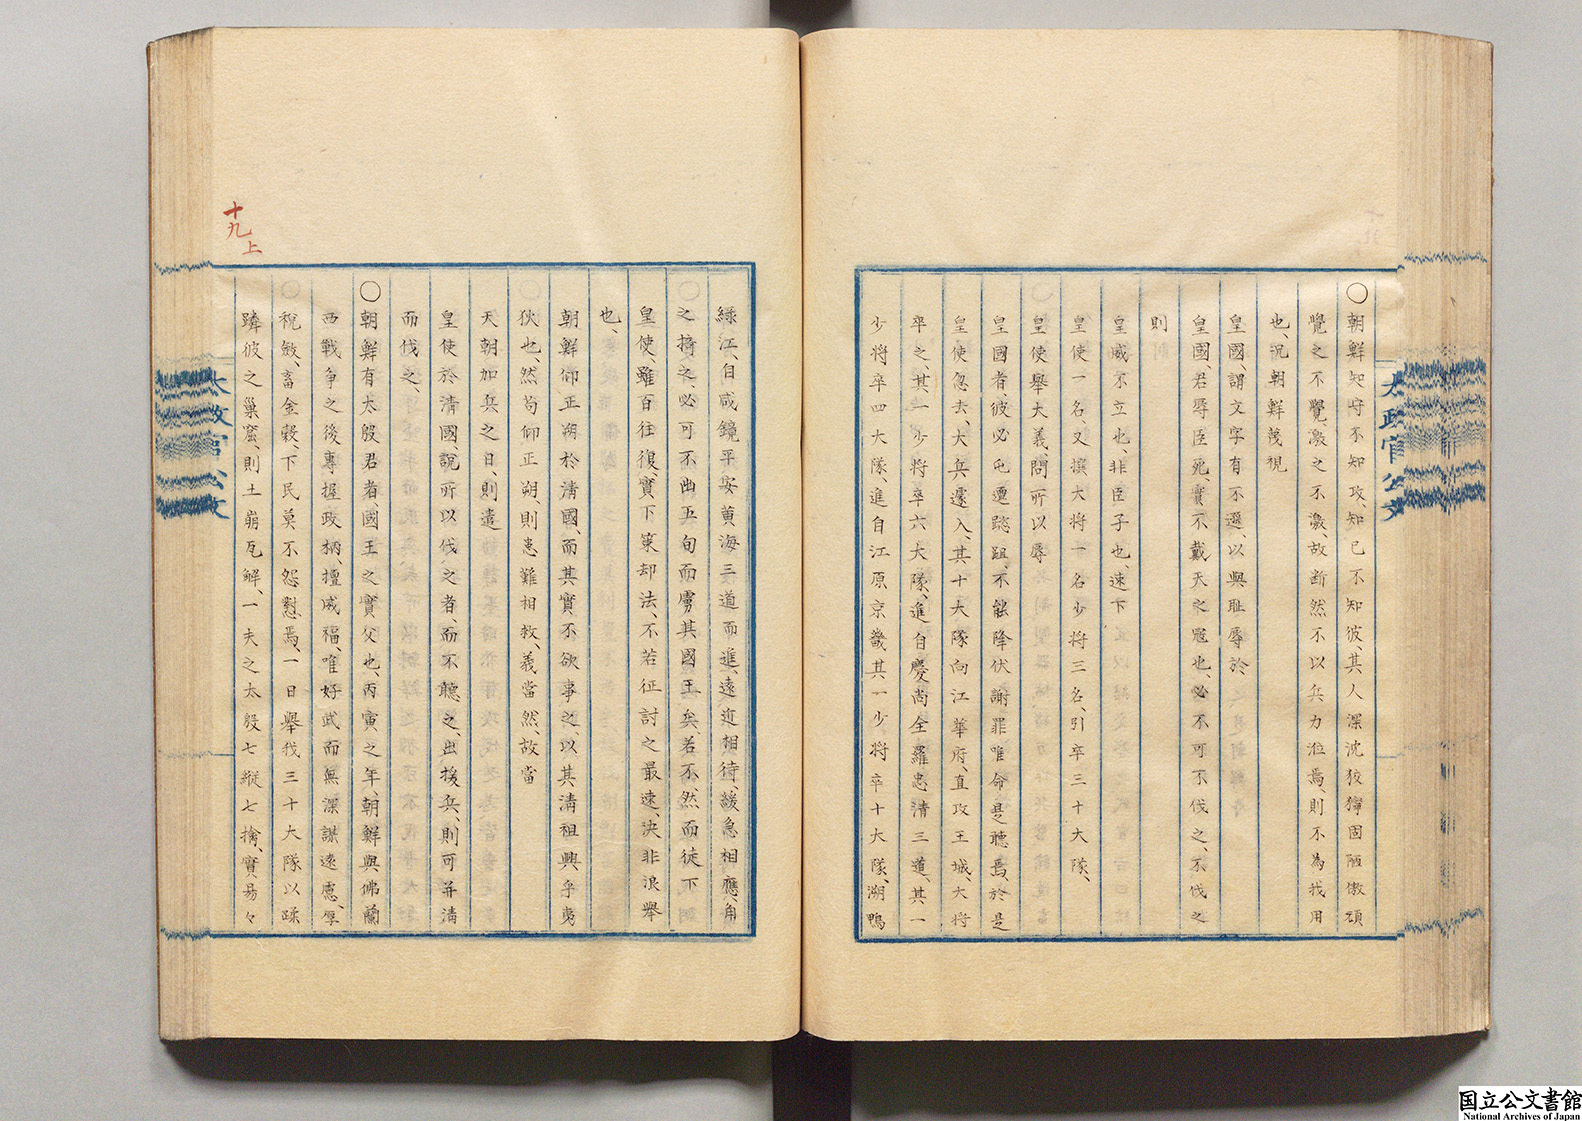 〇朝鮮知守不知攻、知已不知彼、其人深沈狡獰固陋傲頑
覺之不覺、激之不激、故断然不以兵力涖焉、則不為我用
也、況朝鮮蔑視
皇國、謂文字有不遜、以與耻辱於
皇國、君辱臣死、實不戴天之冦也、必不可不伐之、不伐之
則
皇威不立也、非臣子也、速下
皇使一名、又撰大将一名少将三名、引卒三十大隊、
皇使舉大義、問所以辱
皇國者、彼必屯邅趑趄、不能降伏謝罪唯命是聽焉、於是
皇使忽去、大兵遽入、其十大隊向江華府、直攻王城、大将
卒之、其一少将卒六大隊、進自慶尚全羅忠清三道、其一
少将卒四大隊、進自江原京畿其一少将卒十大隊、溯鴨
緑江、自咸鏡平安黄海三道而進、遠近相待、緩急相應、角
之掎之、必可不出五旬而虜其國王矣、若不然而徒下
皇使、雖百往復、實下策却法不若征討之最速、決非浪舉
也、
朝鮮仰正朔於清國、而其實不欲事之、以其清祖興乎夷
狄也、然苟仰正朔、則患難相救、義當然、故當
天朝加兵之日、則遣
皇使於清國、説所以伐之者、而不聽之、出援兵、則可并清
而伐之、
〇朝鮮有太殷君者國王之實父也、丙寅之年、朝鮮與佛蘭
西戰争之後、專握政柄、擅威福、唯好武而無深謀遠慮、厚
税斂、畜金穀、下民莫不怨懟焉、一日舉我三十大隊以蹂
躪彼之巢窟、則土崩瓦解、一夫之太殷七縦七擒、實易々
十九上
太政官公文
太政官公文
国立公文書館
National Archives of Japan